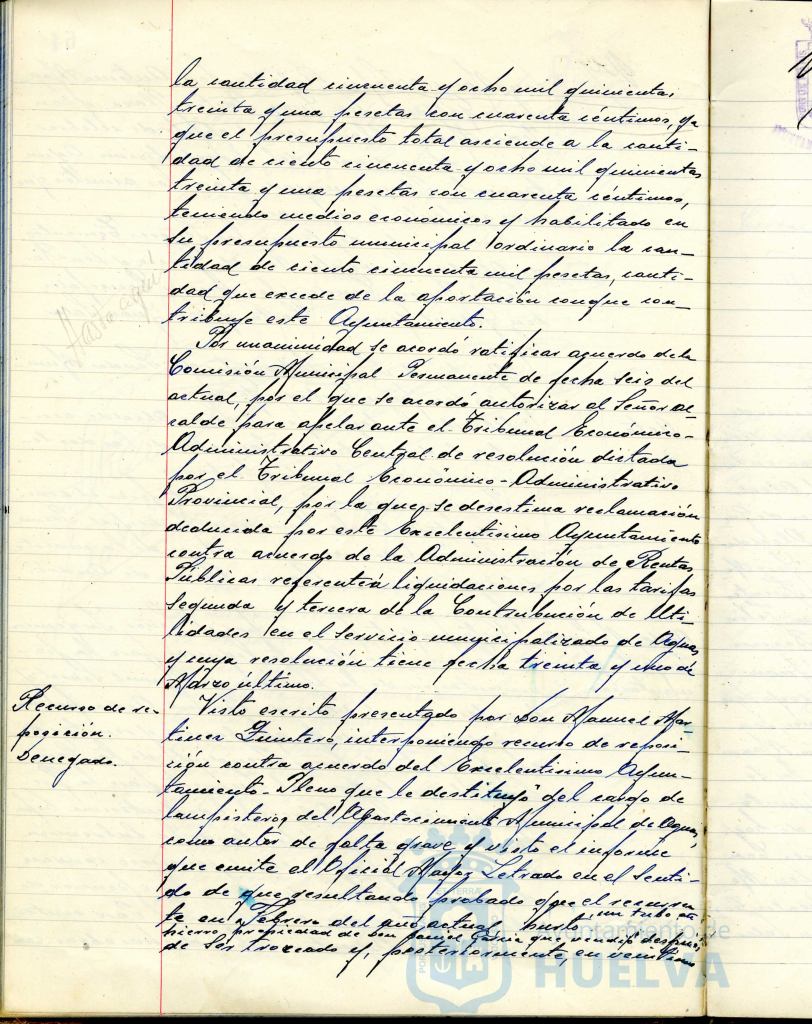 la cantidad cincuenta y ocho mil quinientas
treinta y una pesetas con cuarenta céntimos, ya
que el presupuesto total asciende a la canti-
dad de ciento cincuenta y ocho mil quinientas
treinta y una pesetas con cuarenta céntimos,
teniendo medios económicos y habilitado en
su presupuesto municipal ordinario la can-
tidad de ciento cincuenta mil pesetas, canti-
dad que excede de la aportación conque con-
tribuye este Ayuntamiento.
Hasta aquí
Por unanimidad se acordó ratificar acuerdo de la
Comisión Municipal Permanente de fecha seis del
actual, por el que se acordó autorizar al Señor al-
calde para apelar ante el Tribunal Económico-
Administrativo Central de resolución dictada
por el Tribunal Económico-Administrativo
Provincial, por la que se desestima reclamación
deducida por este Excelentísimo Ayuntamiento
contra acuerdo de la Administración de Rentas
Públicas referente á liquidaciones por las tarifas
segunda y tercera de la Contribución de Uti-
lidades en el servicio municipalizado de Aguas
y cuya resolución tiene fecha treinta y uno de
Marzo último.
Recurso de re-
posición.
Denegado.
Visto escrito presentado por Don Manuel Mar-
tinez Quintero, interponiendo recurso de reposi-
ción contra acuerdo del Excelentísimo Ayun-
tamiento-Pleno que le destituyó del cargo de
lampistero del Abastecimiento Municipal de Aguas,
como autor de falta grave y visto el informe
que emite el Oficial Mayor Letrado en el senti-
do de que resultando probado que el recurren-
te en Febrero del año actual hurtó un tubo de
hierro propiedad de Don que vendió después
de ser troceado y, posteriormente, en
Ayuntamiento de
HUELVA